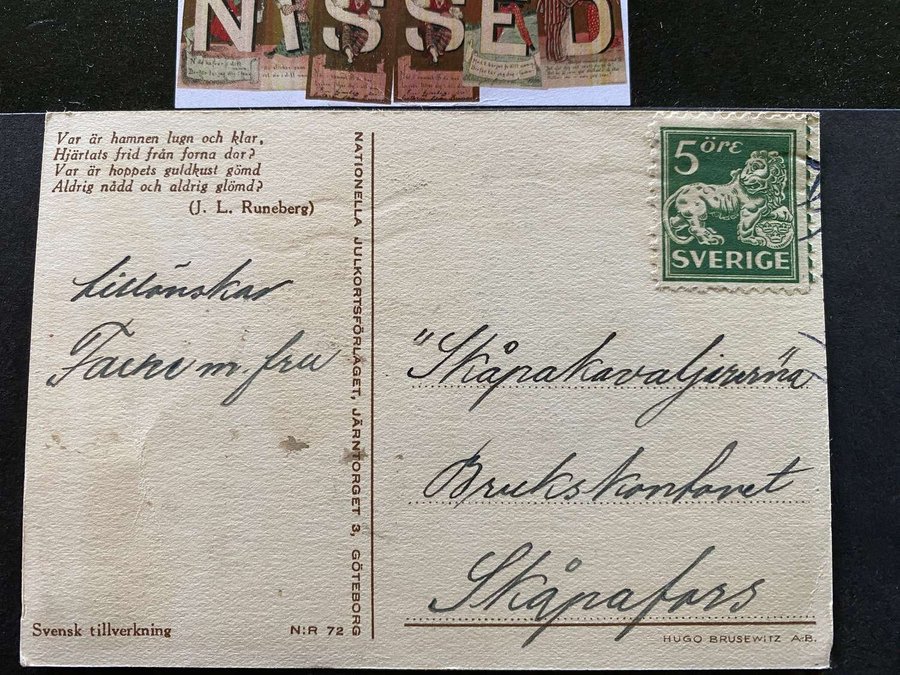 NISSED
Var är hamnen lugn och klar,
Hjärtats frid från forna dar?
Var är hoppets guldkust gömd
Aldrig nådd och aldrig glömd?
(J. L. Runeberg)
Lillönskar
m. fru
Svensk tillverkning
N:R 72
NATIONELLA JULKORTSFÖRLAGET, JÄRNTORGET 3, GÖTEBORG
5 ÖRE
SVERIGE
"Skåpakavaljererna
Brukskontoret
Skåpafors
HUGO BRUSEWITZ A.B.